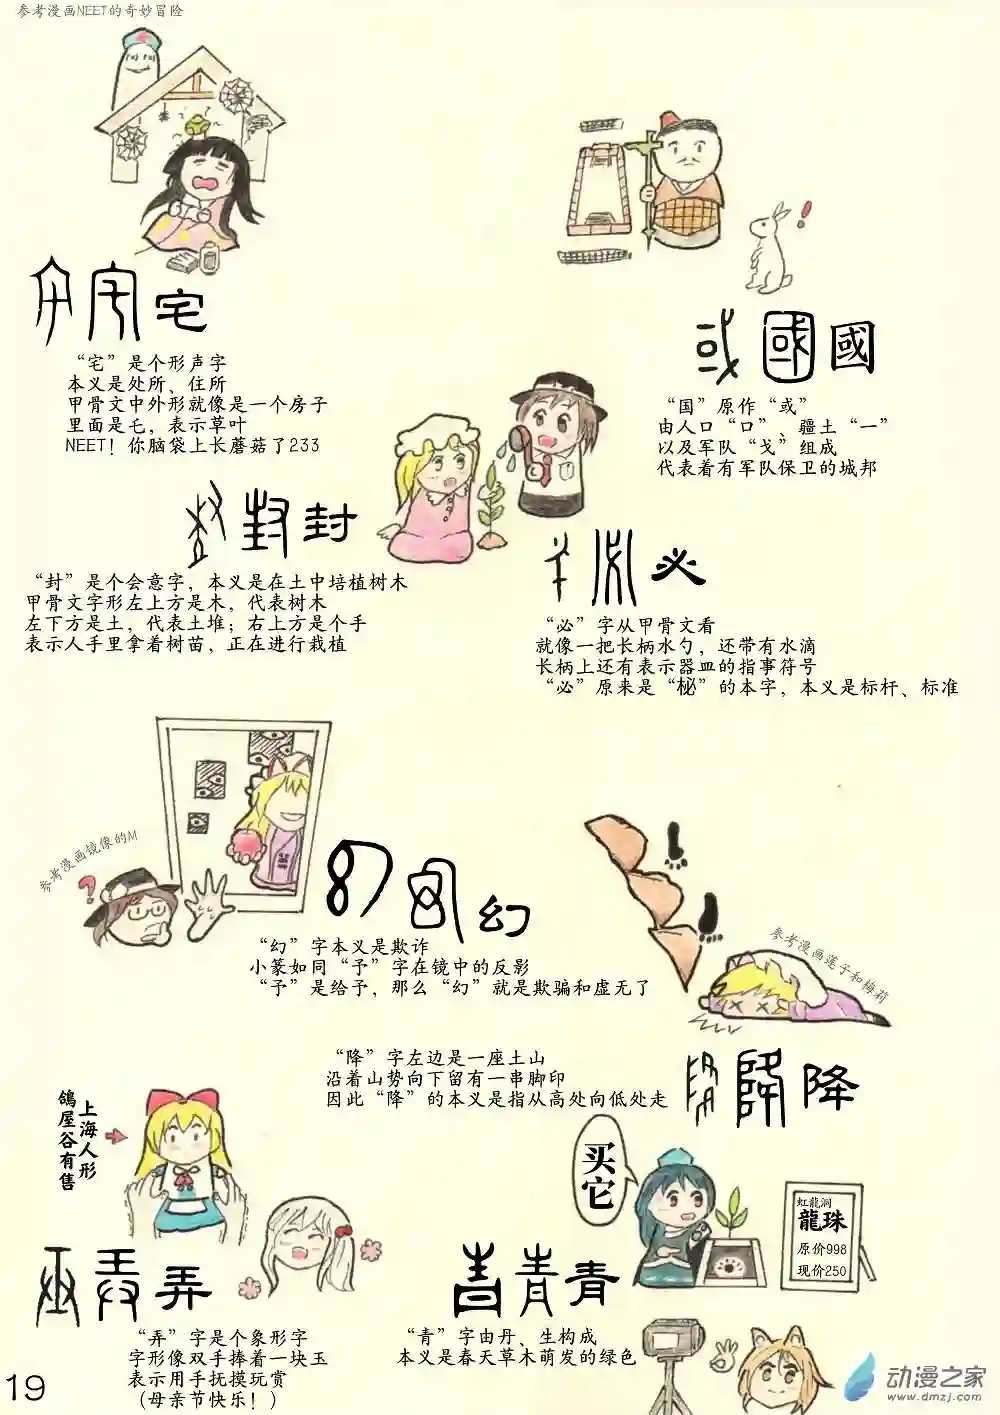 参考漫画NEET的奇妙冒险
宅
“宅”是个形声字
本义是处所、住所
甲骨文中外形就像是一个房子
里面是乇，表示草叶
NEET！你脑袋上长蘑菇了233
或國國
“国”原作“或”
由人口“口”、疆土“一”
以及军队“戈”组成
代表着有军队保卫的城邦
封封
“封”是个会意字，本义是在土中培植树木
甲骨文字形左上方是木，代表树木
左下方是土，代表土堆；右上方是个手
表示人手里拿着树苗，正在进行栽植
必
“必”字从甲骨文看
就像一把长柄水勺，还带有水滴
长柄上还有表示器皿的指事符号
“必”原来是“柲”的本字，本义是标杆、标准
参考漫画镜像的M
?
幻
“幻”字本义是欺诈
小篆如同“予”字在镜中的反影
“予”是给予，那么“幻”就是欺骗和虚无了
参考漫画莲子和梅莉
降降
“降”字左边是一座土山
沿着山势向下留有一串脚印
因此“降”的本义是指从高处向低处走
上海人形
鸽屋谷有售
弄
“弄”字是个象形字
字形像双手捧着一块玉
表示用手抚摸玩赏
（母亲节快乐！）
买它
虹龍洞
龍珠
原价998
现价250
青青
“青”字由丹、生构成
本义是春天草木萌发的绿色
19
动漫之家
www.dmzj.com